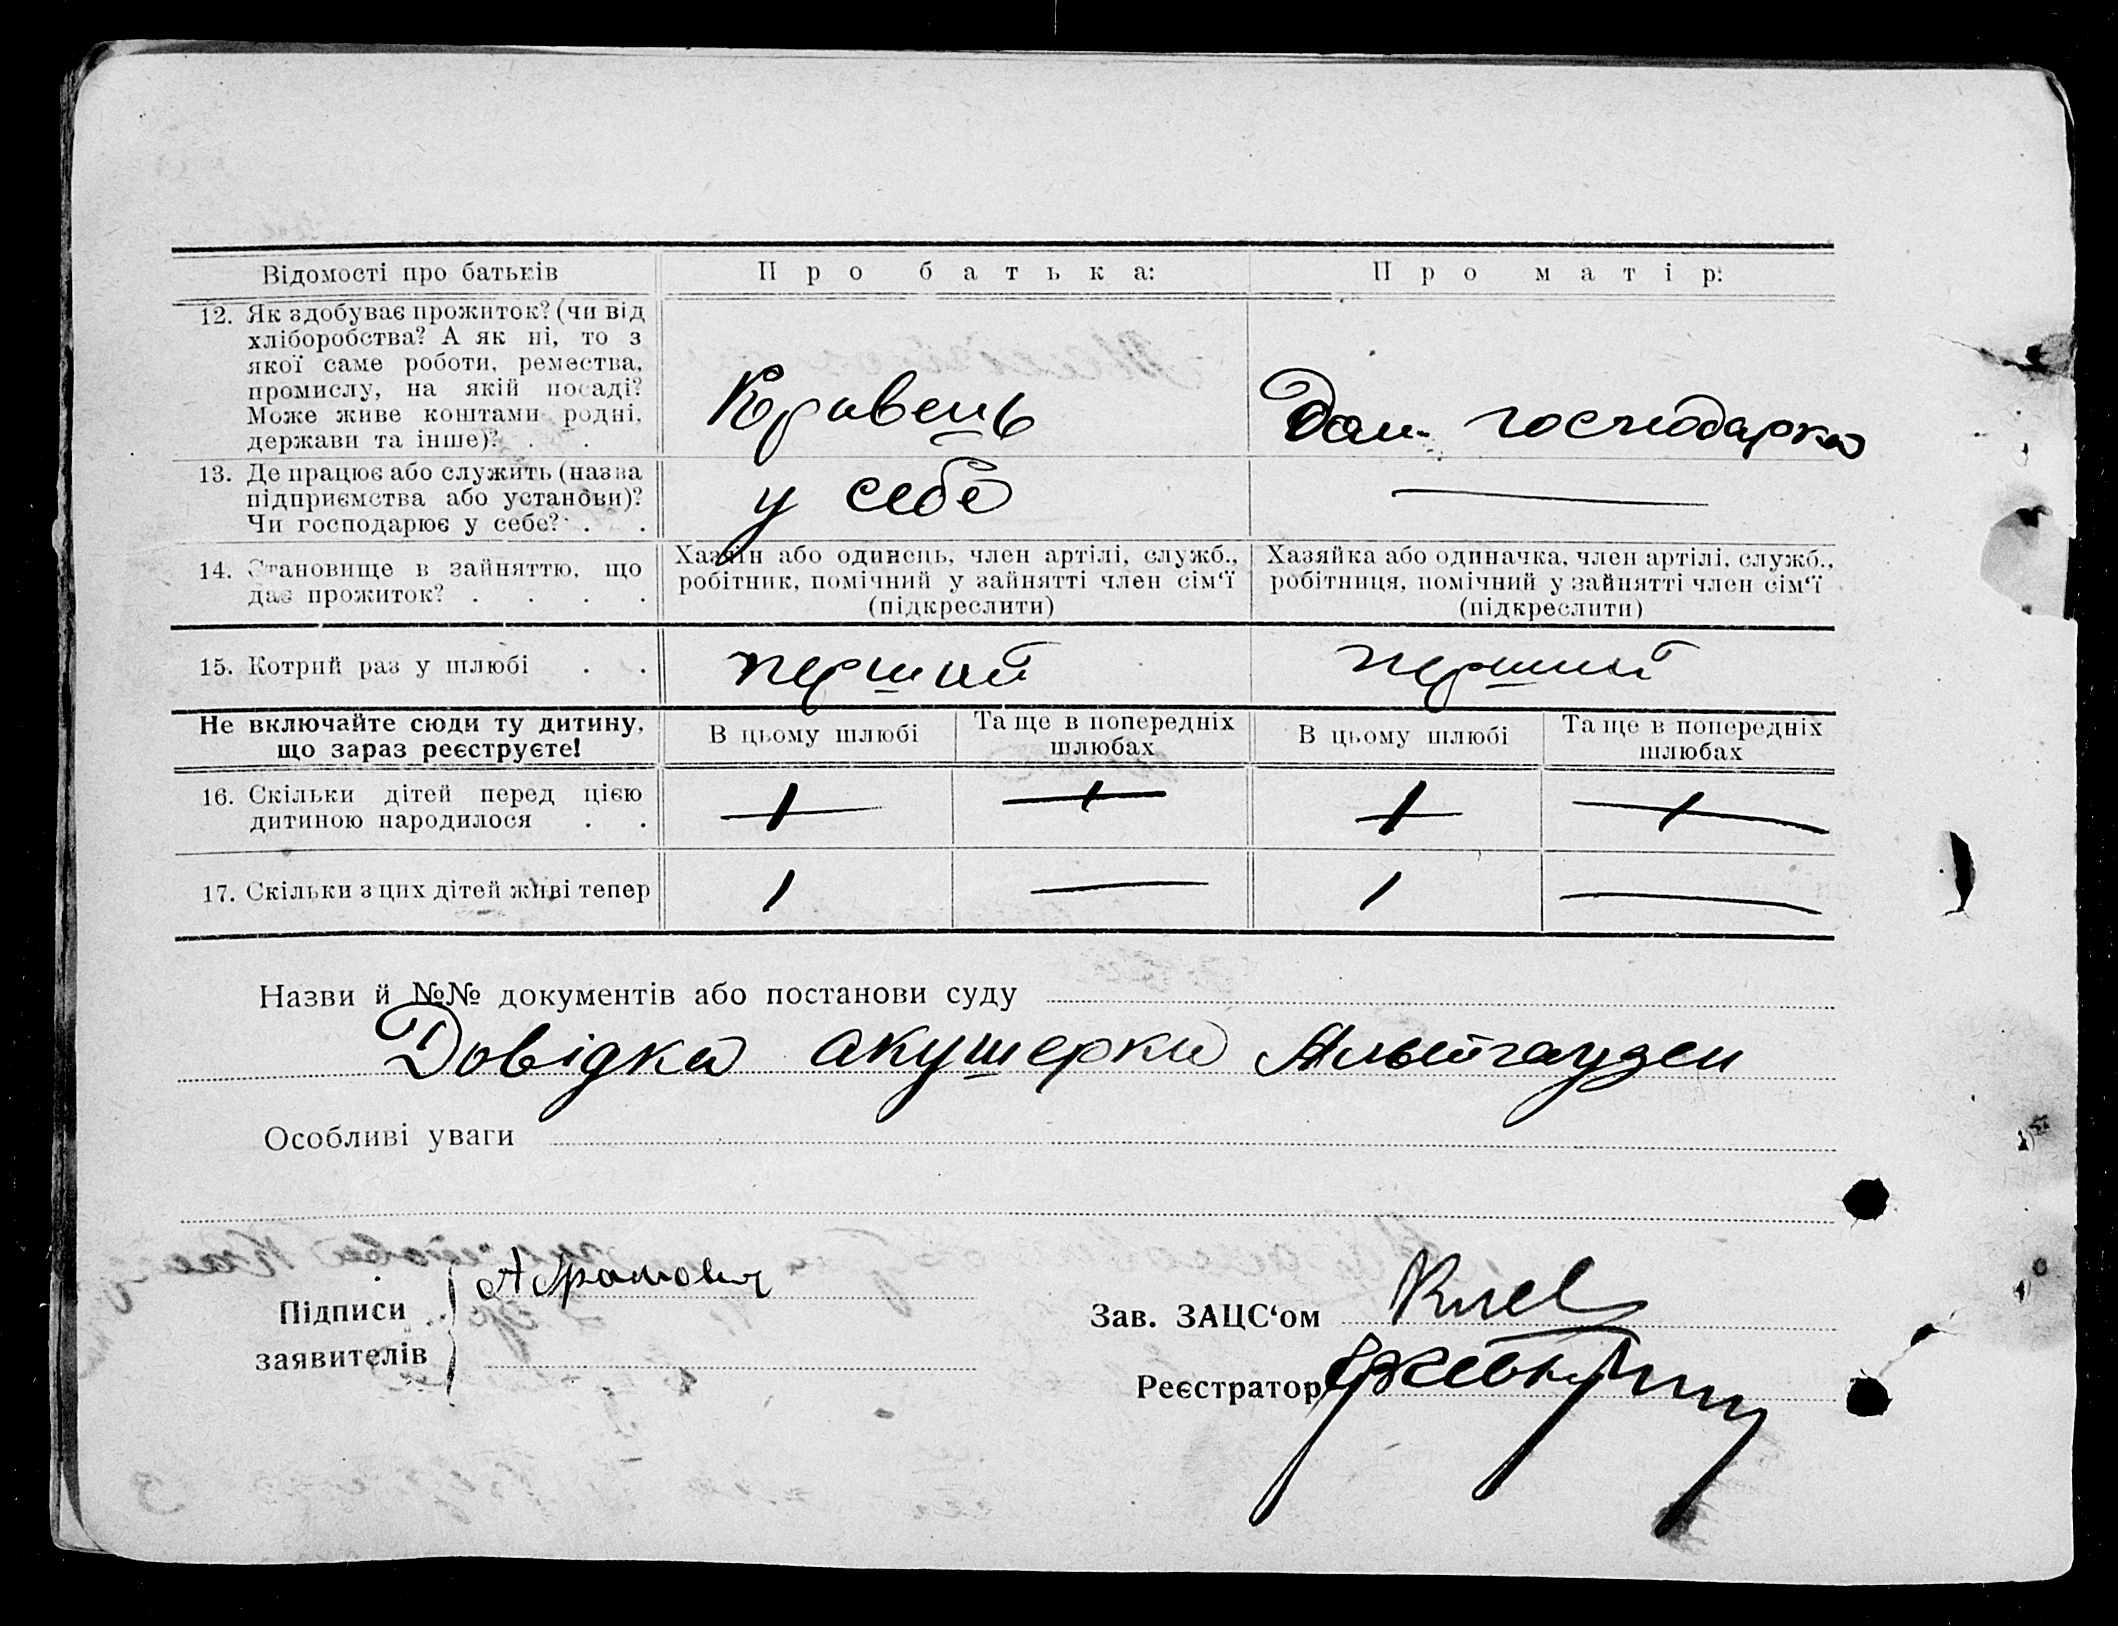 Відомості про батьків
Про батька:
Про матір:
12. Як здобуває прожиток? (чи від
хліборобства? А як ні, то з
якої саме роботи, ремества,
промислу, на якій посаді?
Може живе коштами родні,
держави та інше)? . .
Кравець
Дом. господарка
13. Де працює або служить (назва
підприємства або установи)?
Чи господарює у себе? . .
у себе
14. Становище в зайняттю, що
дає прожиток? . . . .
Хазяїн або одинець, член артілі, служб.,
робітник, помічний у зайнятті член сім‘ї
(підкреслити)
Хазяйка або одиначка, член артілі, служб.,
робітниця, помічний у зайнятті член сім‘ї
(підкреслити)
15. Котрий раз у шлюбі . .
перший
перший
Не включайте сюди ту дитину,
що зараз реєструєте!
В цьому шлюбі
Та ще в попередніх
шлюбах
В цьому шлюбі
Та ще в попередніх
шлюбах
16. Скільки дітей перед цією
дитиною народилося . .
1
1
17. Скільки з цих дітей живі тепер
1
1
Назви й №№ документів або постанови суду
Довідка акушерки Альтгаузен
Особливі уваги
Підписи
заявителів
Абрамович
Зав. ЗАЦС‘ом
Реєстратор